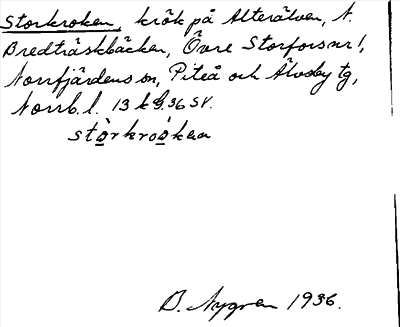 Storkroken, krök på Alterälven, N.
Bredträskbäcken, Övre Storforsnr 1,
Norrfjärdens sn, Piteå och Älvsby tg,
Norrb. l. 13 k 9.36 SV.
stòrkroόken
B. Nygren 1936.